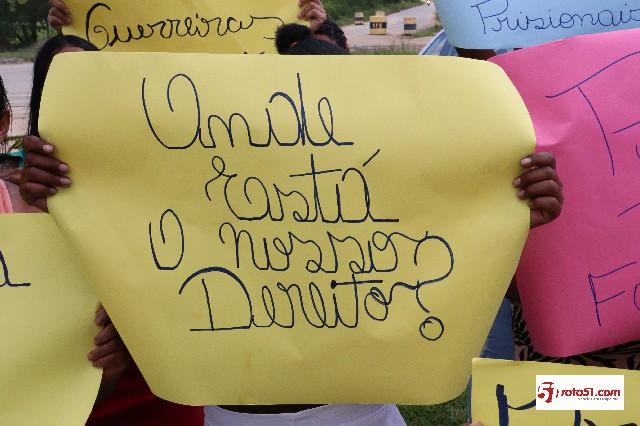 Guerreiras
Prisionais
Onde
Está
o nosso
Direito?
Fa
roto51.com